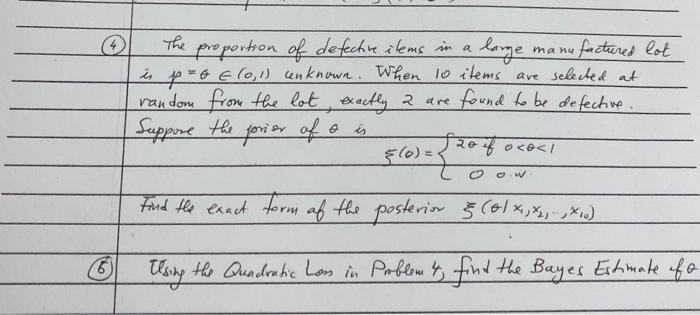 ④ The proportion of defective items in a large manufactured lot
is p = θ ∈ (0,1) unknown. When 10 items are selected at
random from the lot, exactly 2 are found to be defective.
Suppose the prior of θ is
ξ(θ) = { 2θ if 0<θ<1
0 o.w.
Find the exact form of the posterior ξ(θ|x₁,x₂,..,x₁₀)
⑤ Using the Quadratic Loss in Problem 4, find the Bayes Estimate of θ